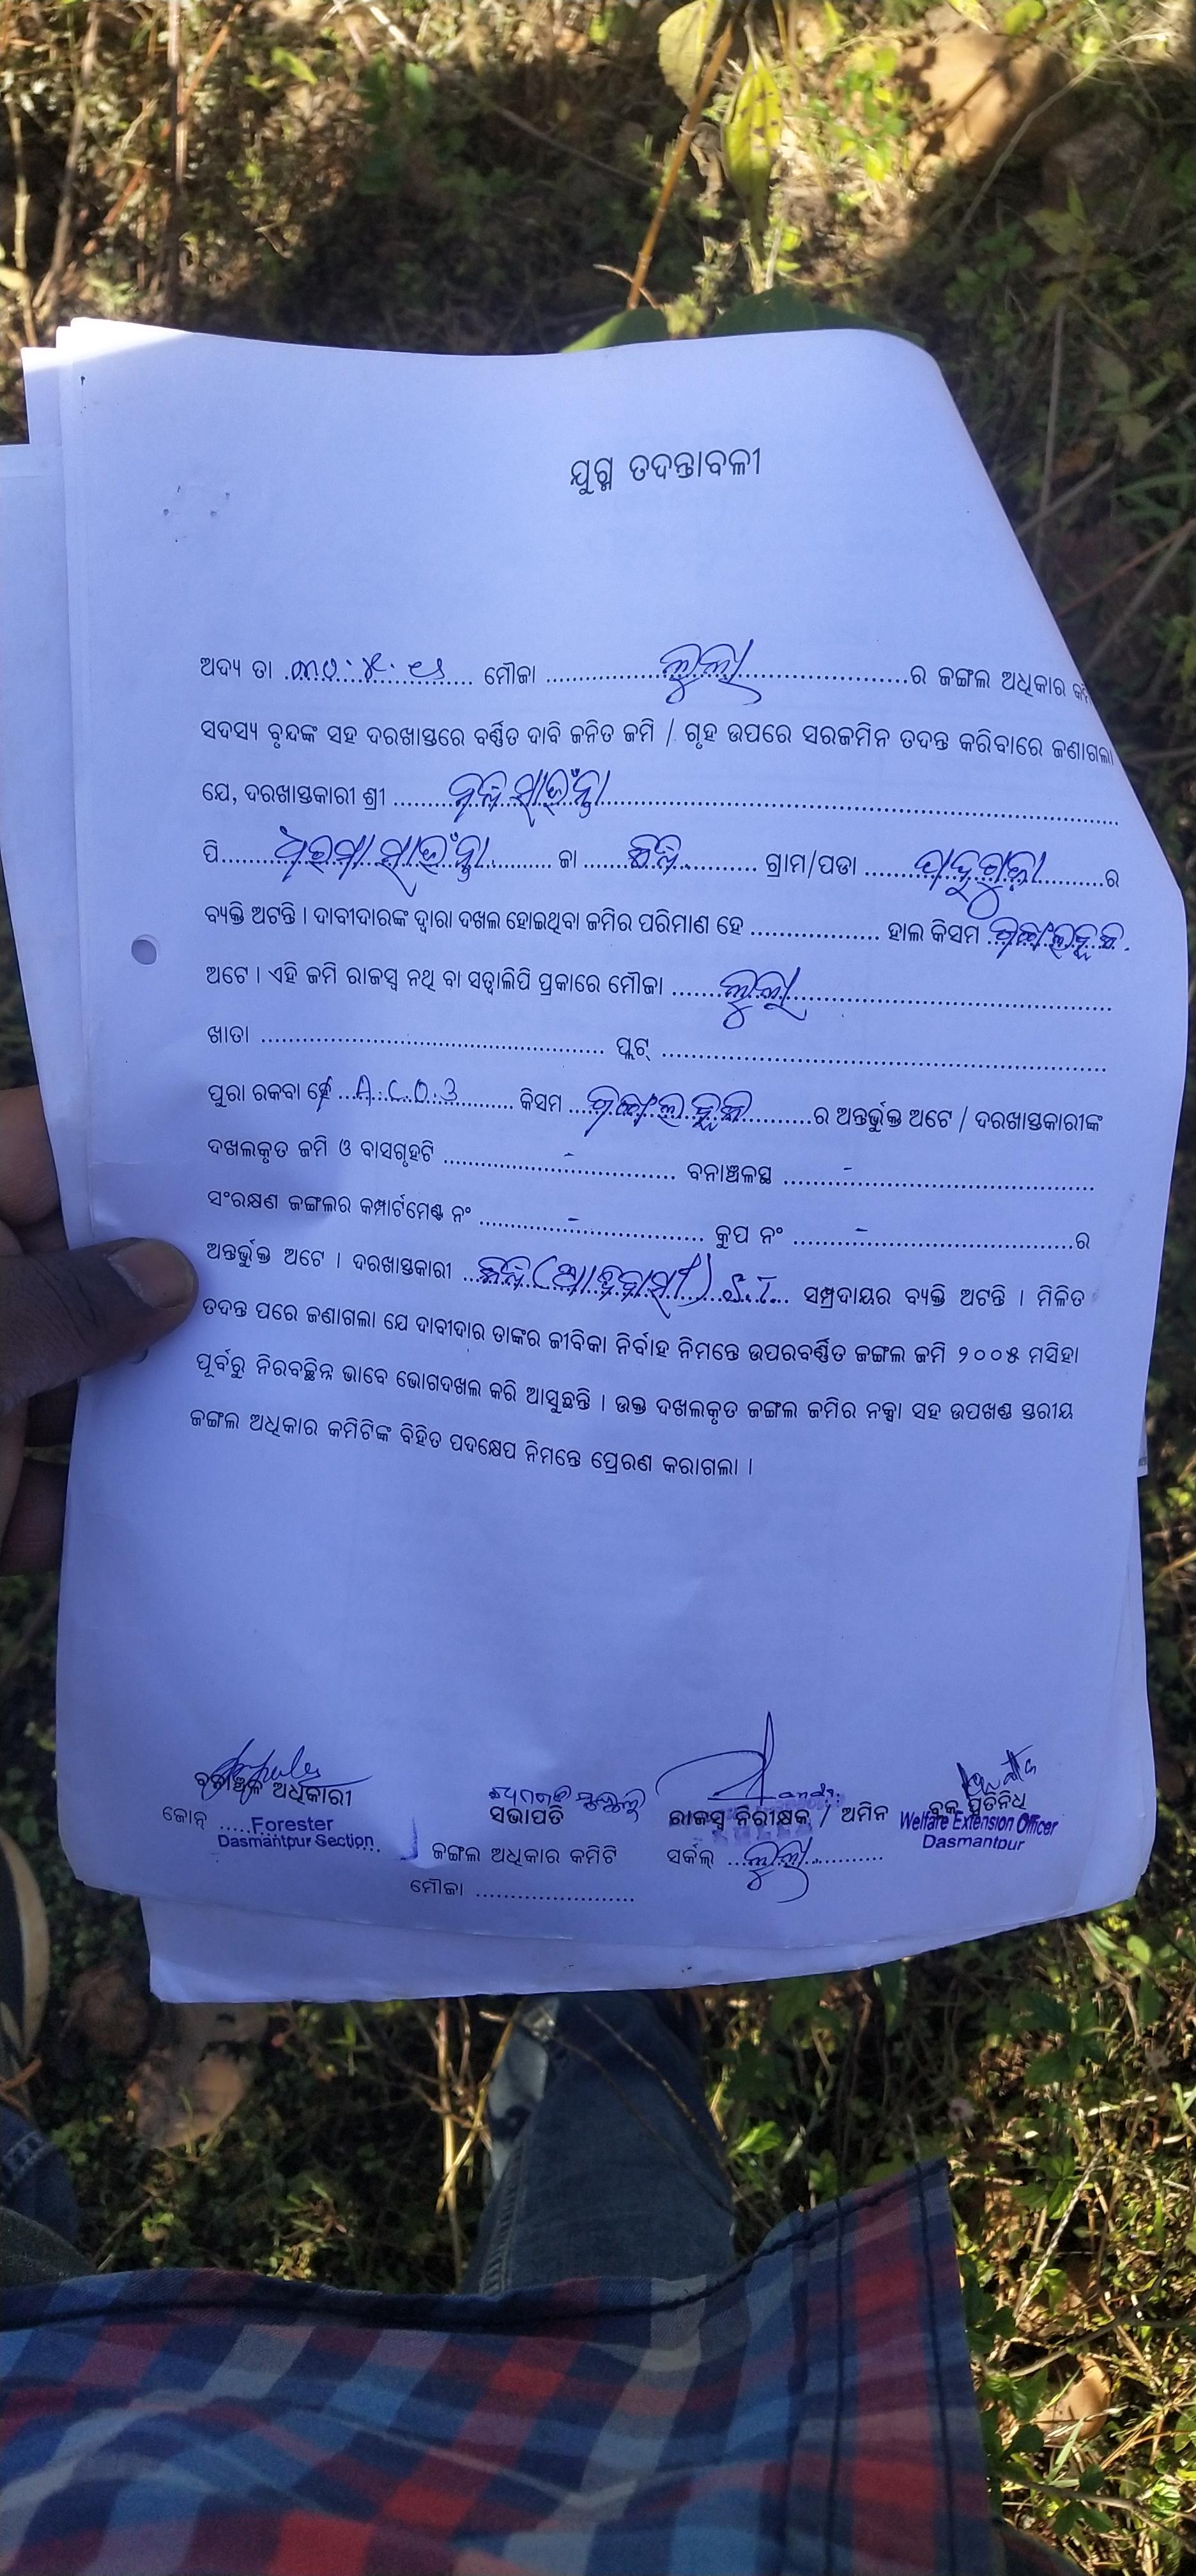 ଯୁଗ୍ମ ତଦନ୍ତାବଳୀ
ଅଦ୍ୟ ତା ................ ମୌଜା ................ ର ଜଙ୍ଗଲ ଅଧିକାର
ସଦସ୍ୟ ବୃନ୍ଦଙ୍କ ସହ ଦରଖାସ୍ତରେ ବର୍ଣ୍ଣିତ ଦାବି ଜନିତ ଜମି / ଗୃହ ଉପରେ ସରଜମିନ ତଦନ୍ତ କରିବାରେ ଜଣାଗଲା
ଯେ, ଦରଖାସ୍ତକାରୀ ଶ୍ରୀ ................
ପି................ ଜା ................ ଗ୍ରାମ/ପଡା ................ ର
ବ୍ୟକ୍ତି ଅଟନ୍ତି । ଦାବୀଦାରଙ୍କ ଦ୍ୱାରା ଦଖଲ ହୋଇଥିବା ଜମିର ପରିମାଣ ହେ ................ ହାଲ କିସମ
ଅଟେ । ଏହି ଜମି ରାଜସ୍ୱ ନଥି ବା ସତ୍ୱାଲିପି ପ୍ରକାରେ ମୌଜା ................
ଖାତା ................ ପ୍ଲଟ୍ ................
ପୁରା ରକବା ହେ A.C 0.3 କିସମ ................ ର ଅନ୍ତର୍ଭୁକ୍ତ ଅଟେ / ଦରଖାସ୍ତକାରୀଙ୍କ
ଦଖଲକୃତ ଜମି ଓ ବାସଗୃହଟି ................ ବନାଞ୍ଚଳସ୍ଥ ................
ସଂରକ୍ଷଣ ଜଙ୍ଗଲର କମ୍ପାର୍ଟମେଣ୍ଟ ନଂ ................ କୁପ ନଂ ................ ର
ଅନ୍ତର୍ଭୁକ୍ତ ଅଟେ । ଦରଖାସ୍ତକାରୀ ................ S.T. ସମ୍ପ୍ରଦାୟର ବ୍ୟକ୍ତି ଅଟନ୍ତି । ମିଳିତ
ତଦନ୍ତ ପରେ ଜଣାଗଲା ଯେ ଦାବୀଦାର ତାଙ୍କର ଜୀବିକା ନିର୍ବାହ ନିମନ୍ତେ ଉପରବର୍ଣ୍ଣିତ ଜଙ୍ଗଲ ଜମି ୨୦୦୫ ମସିହା
ପୂର୍ବରୁ ନିରବଚ୍ଛିନ୍ନ ଭାବେ ଭୋଗଦଖଲ କରି ଆସୁଛନ୍ତି । ଉକ୍ତ ଦଖଲକୃତ ଜଙ୍ଗଲ ଜମିର ନକ୍ସା ସହ ଉପଖଣ୍ଡ ସ୍ତରୀୟ
ଜଙ୍ଗଲ ଅଧିକାର କମିଟିଙ୍କ ବିହିତ ପଦକ୍ଷେପ ନିମନ୍ତେ ପ୍ରେରଣ କରାଗଲା ।
ବନାଞ୍ଚଳ ଅଧିକାରୀ ସଭାପତି ରାଜସ୍ୱ ନିରୀକ୍ଷକ / ଅମିନ ବ୍ଲକ ପ୍ରତିନିଧି
ଜୋନ୍ ..... Forester Welfare Extension Officer
Dasmantpur Section Dasmantpur
ଜଙ୍ଗଲ ଅଧିକାର କମିଟି ସର୍କଲ୍ ................
ମୌଜା ................